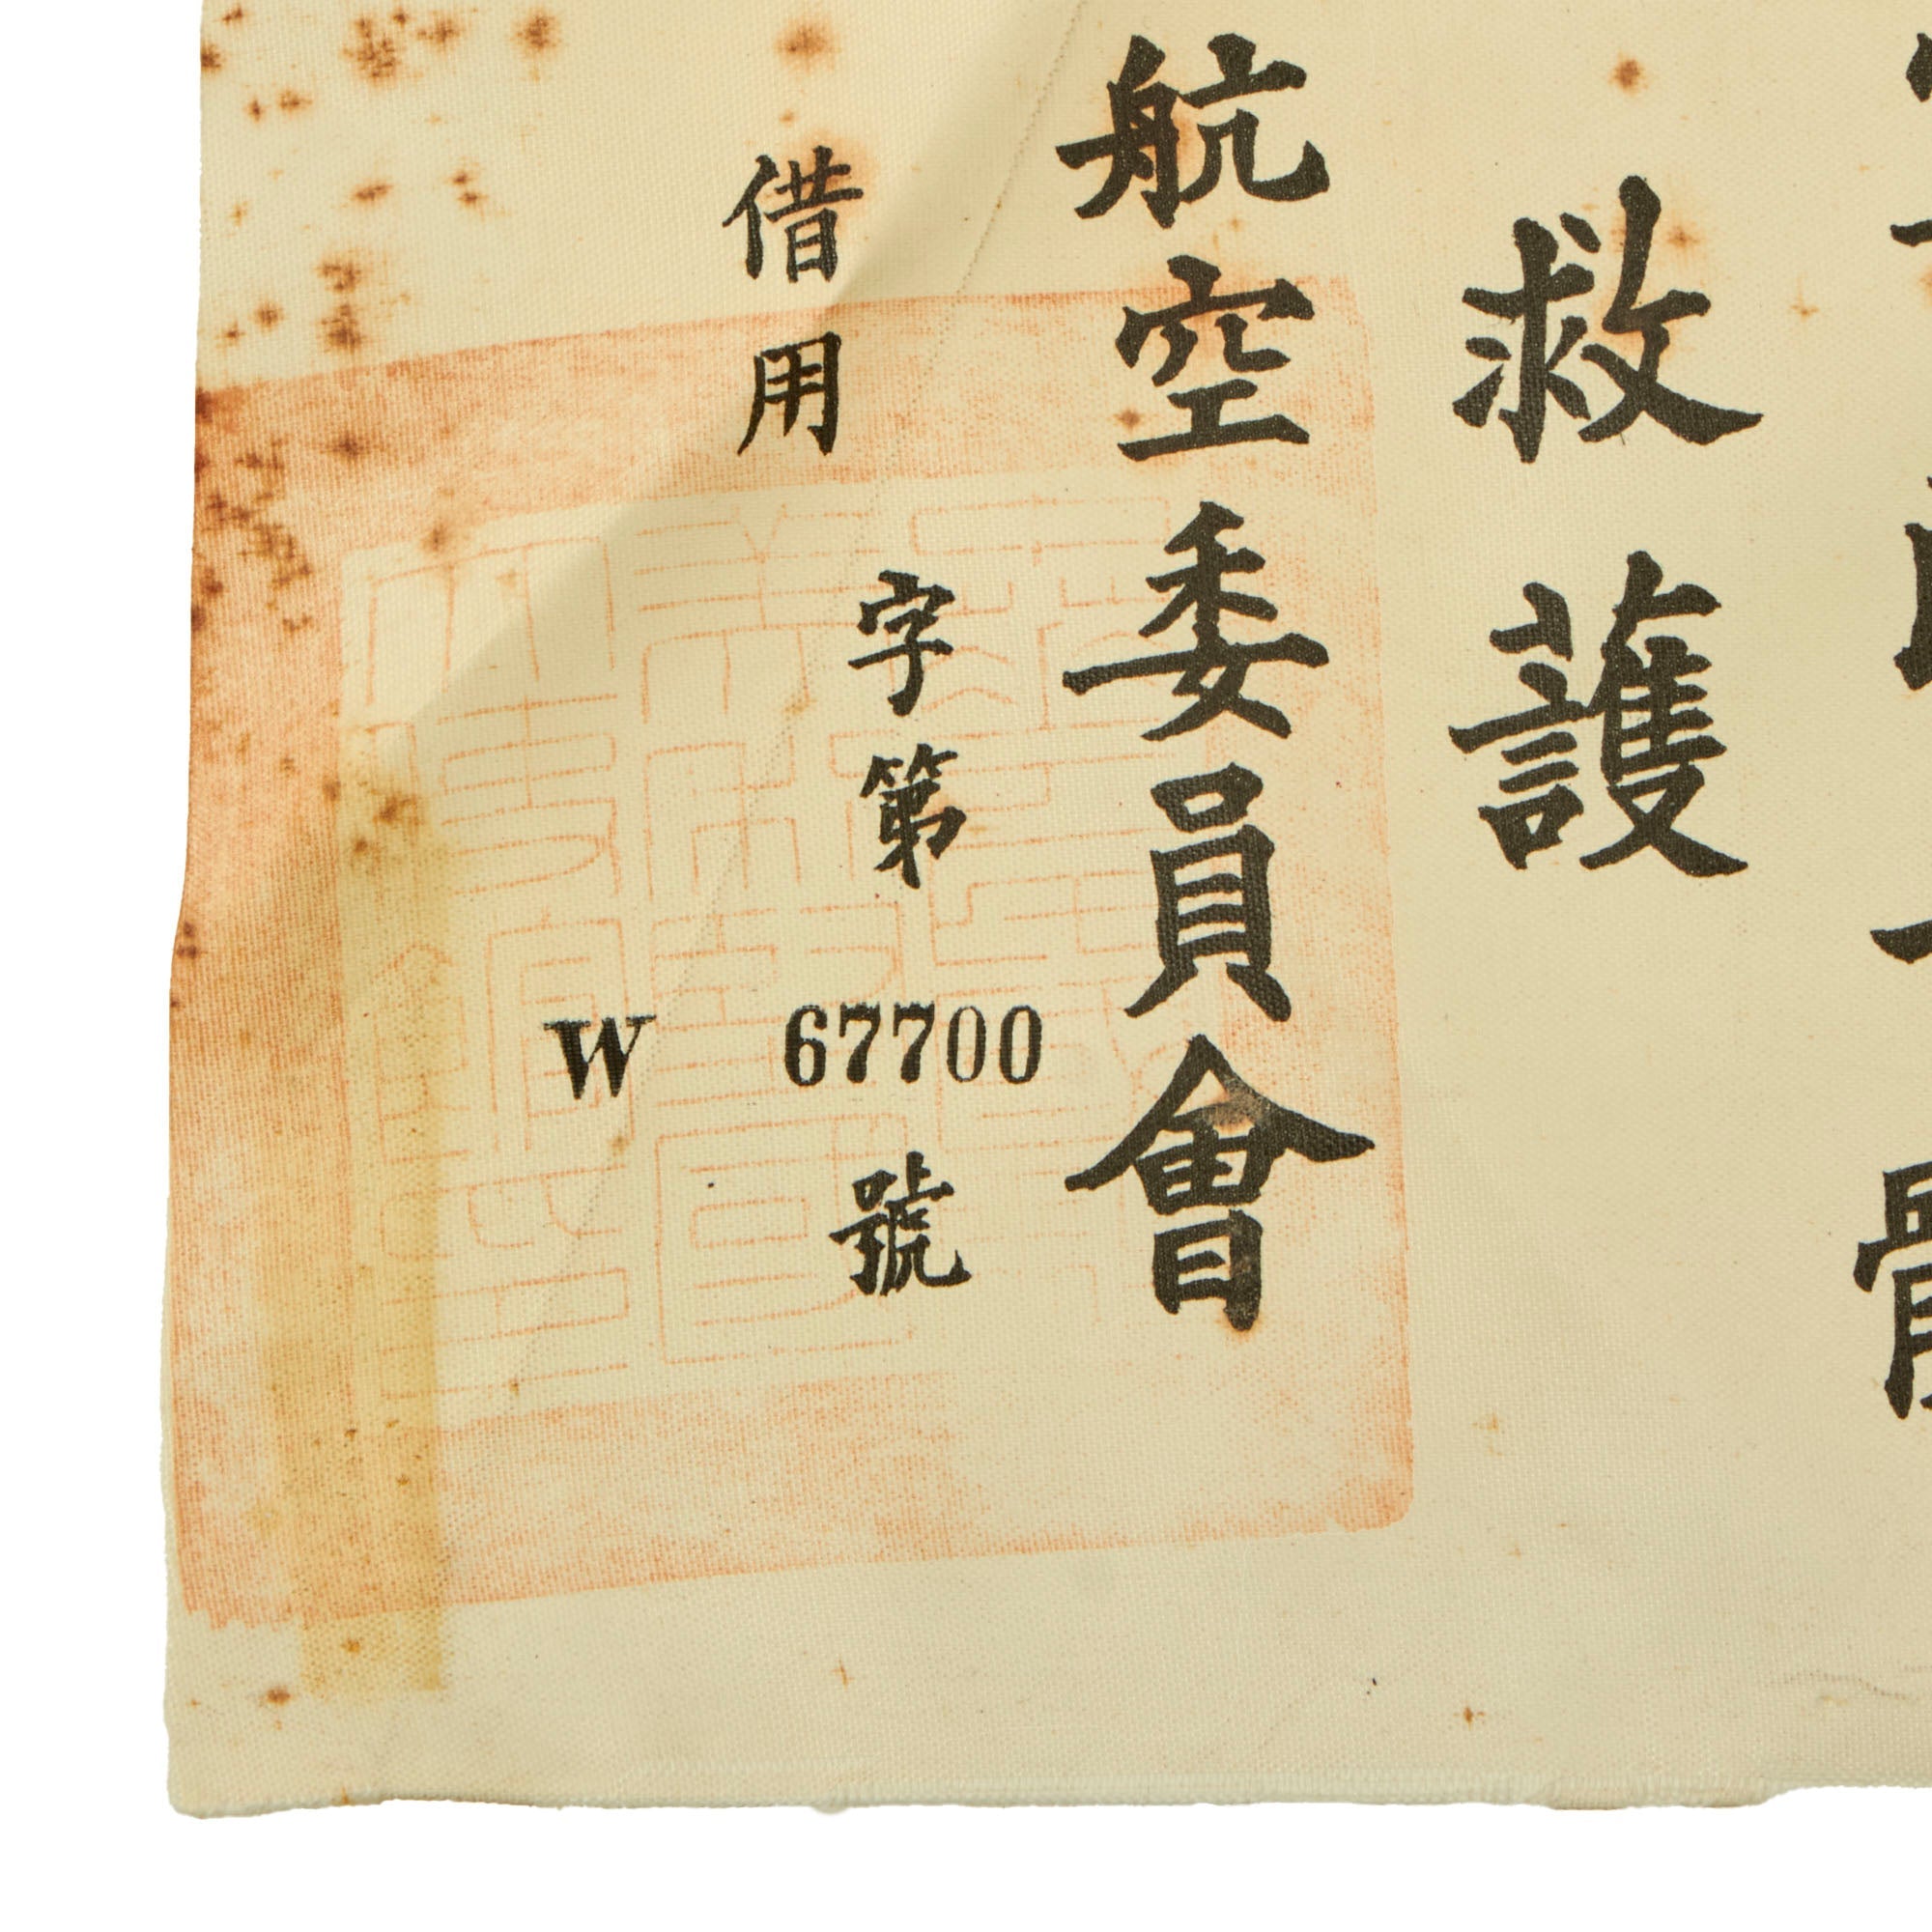 體
救護
航空委員會
借用
字第
W 67700
號